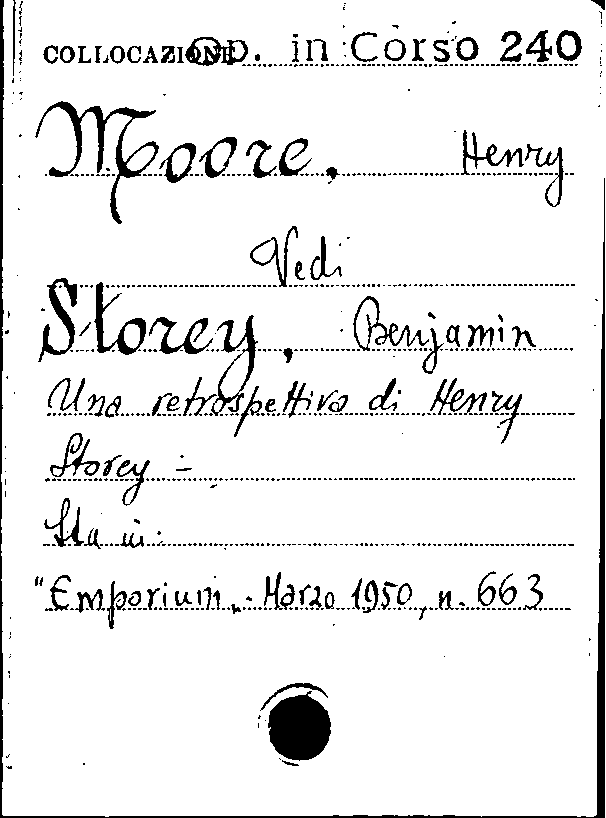 COLLOCAZIONE Op. in Corso 240
Moore, Henry
Vedi
Storey, Benjamin
Una retrospettiva di Henry
Storey -
Sta in:
"Emporium". Marzo 1950, n. 663